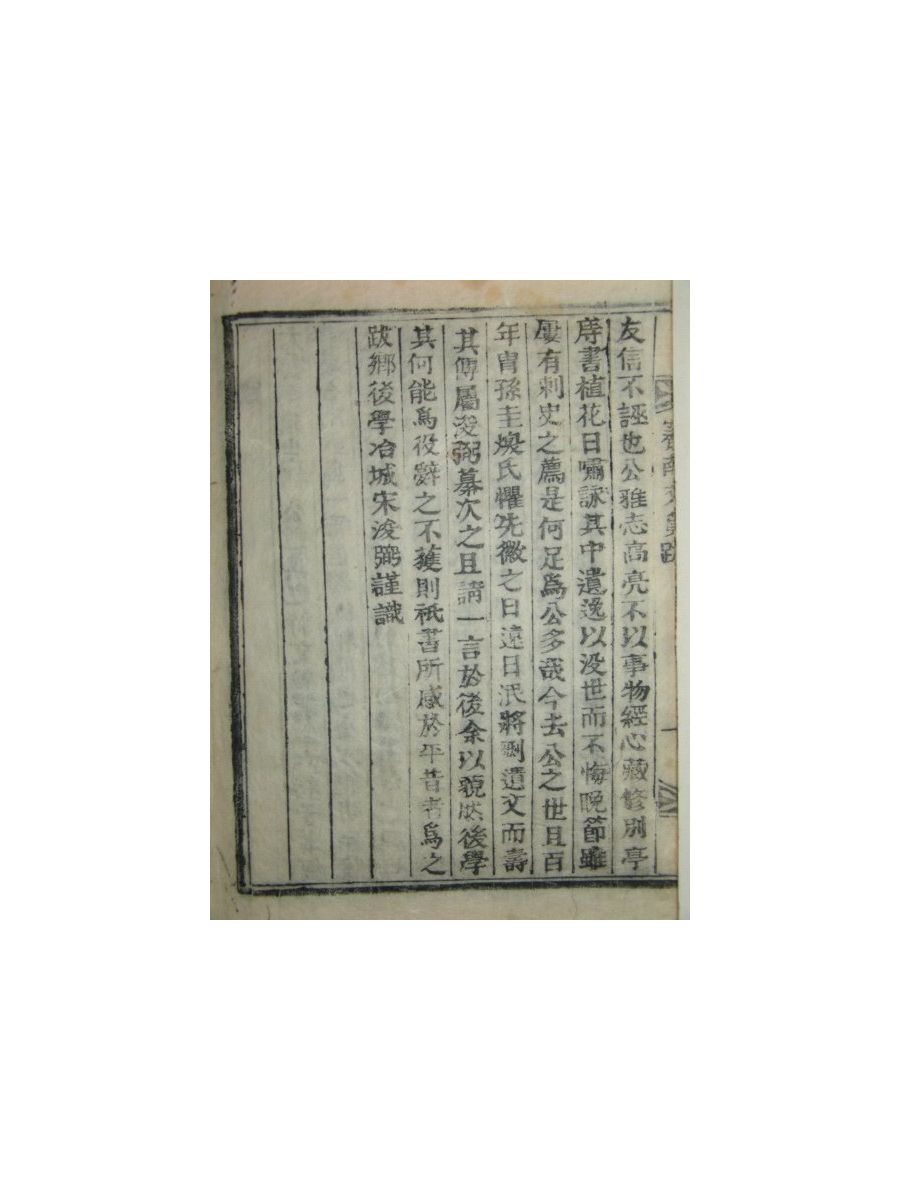 友信不誣也公雅志高亮不以事物經心藏修別亭
庤書植花日嘯詠其中遺逸以没世而不悔晩節雖
屢有刺史之薦是何足爲公多哉今去公之世且百
年胄孫圭煥氏懼先徽之日遠日泯將剞遺文而壽
其傳屬浚弼纂次之且請一言於後余以藐然後學
其何能爲役辭之不獲則祇書所感於平昔者爲之
跋鄕後學冶城宋浚弼謹識